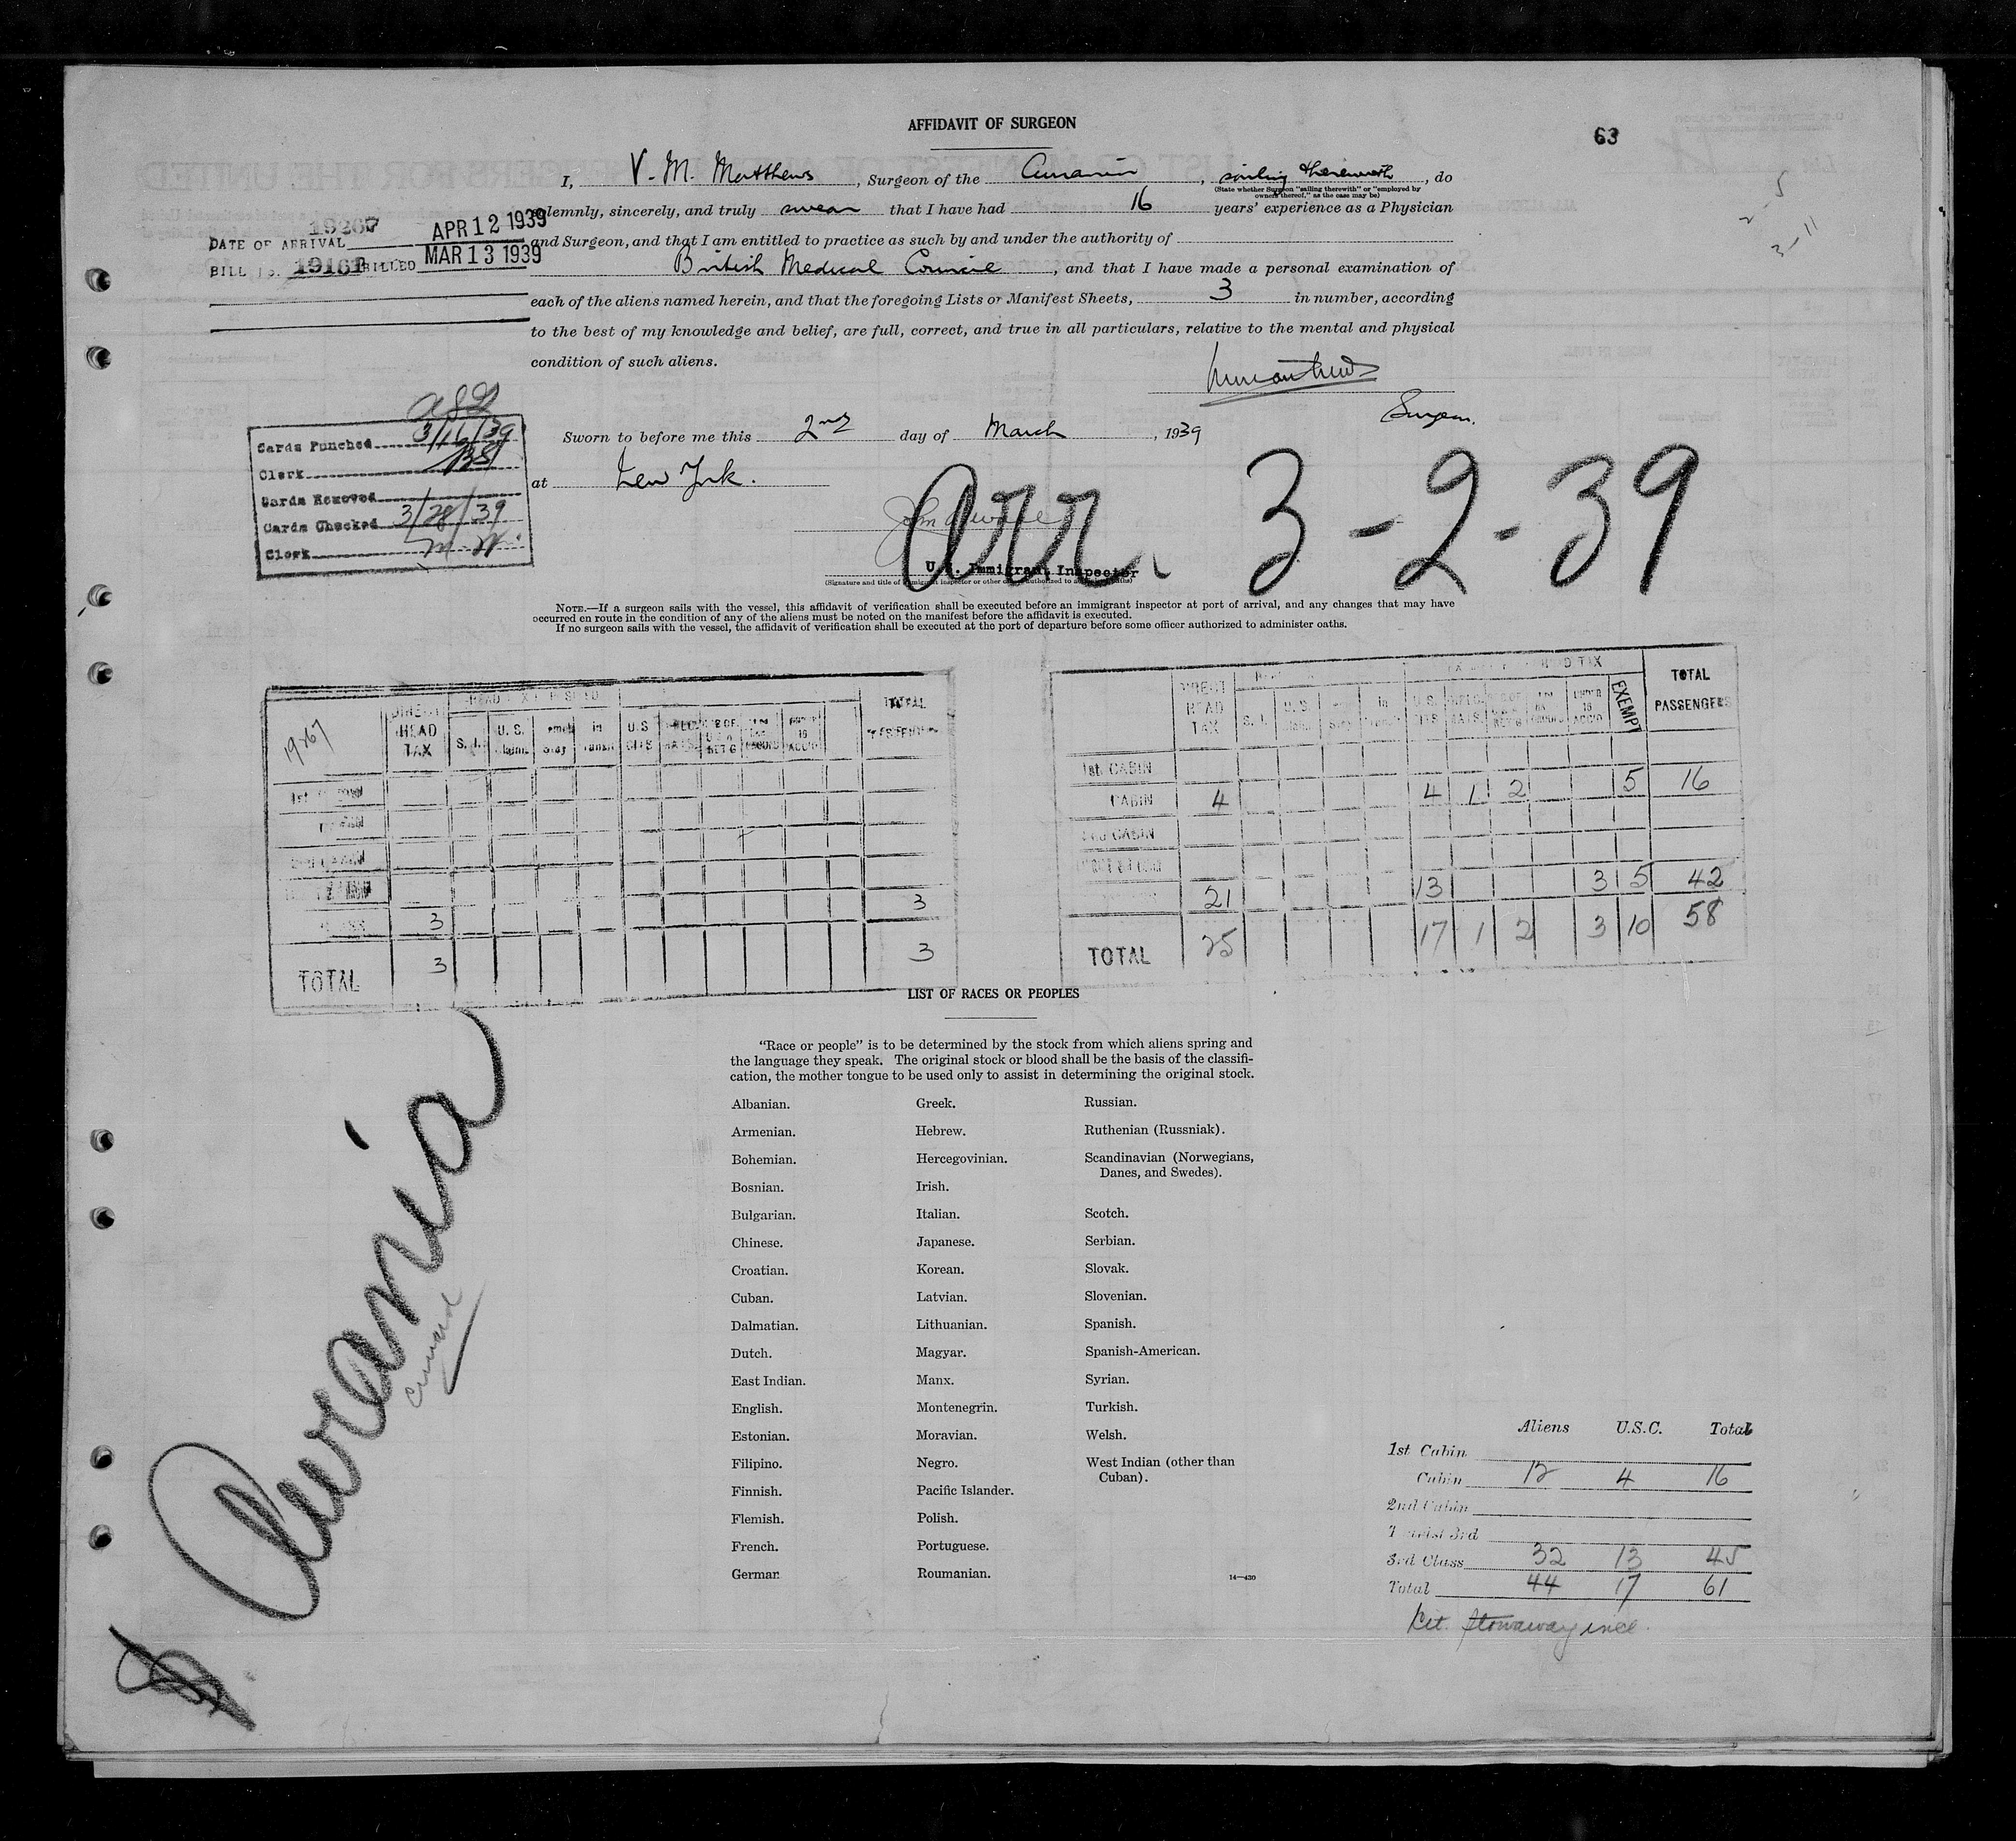 AFFIDAVIT OF SURGEON
63
I, V. M. Matthews, Surgeon of the Aurania, sailing therewith, do
(State whether Surgeon "sailing therewith" or "employed by
owners thereof," as the case may be)
solemnly, sincerely, and truly swear that I have had 16 years' experience as a Physician
and Surgeon, and that I am entitled to practice as such by and under the authority of
British Medical Council, and that I have made a personal examination of
each of the aliens named herein, and that the foregoing Lists or Manifest Sheets, 3 in number, according
to the best of my knowledge and belief, are full, correct, and true in all particulars, relative to the mental and physical
condition of such aliens.
Surgeon.
19267 APR 12 1939
DATE OF ARRIVAL
BILL BILLED MAR 13 1939
2-5
3-11
Cards Punched 3/16/39
Clerk
Cards Removed
Cards Checked 3/28/39
Clerk
Sworn to before me this 2nd day of March, 1939
at New York.
arr. 3-2-39
U.S. Immigrant Inspector
(Signature and title of immigrant inspector or other officer authorized to administer oaths)
NOTE.—If a surgeon sails with the vessel, this affidavit of verification shall be executed before an immigrant inspector at port of arrival, and any changes that may have
occurred en route in the condition of any of the aliens must be noted on the manifest before the affidavit is executed.
If no surgeon sails with the vessel, the affidavit of verification shall be executed at the port of departure before some officer authorized to administer oaths.
19267 DIRECT HEAD TAX S. I. U. S. in U. S. CITS TOTAL
1st CABIN
CABIN
2nd CABIN
3 3
TOTAL 3 3
DIRECT HEAD TAX S. I. U. S. in U. S. CITS UNDER 16 ACC'D EXEMPT TOTAL PASSENGERS
1st CABIN
CABIN 4 4 1 2 5 16
2nd CABIN
21 13 3 5 42
TOTAL 25 17 1 2 3 10 58
LIST OF RACES OR PEOPLES
"Race or people" is to be determined by the stock from which aliens spring and
the language they speak. The original stock or blood shall be the basis of the classifi-
cation, the mother tongue to be used only to assist in determining the original stock.
Albanian.
Armenian.
Bohemian.
Bosnian.
Bulgarian.
Chinese.
Croatian.
Cuban.
Dalmatian.
Dutch.
East Indian.
English.
Estonian.
Filipino.
Finnish.
Flemish.
French.
German
Greek.
Hebrew.
Hercegovinian.
Irish.
Italian.
Japanese.
Korean.
Latvian.
Lithuanian.
Magyar.
Manx.
Montenegrin.
Moravian.
Negro.
Pacific Islander.
Polish.
Portuguese.
Roumanian.
Russian.
Ruthenian (Russniak).
Scandinavian (Norwegians,
Danes, and Swedes).
Scotch.
Serbian.
Slovak.
Slovenian.
Spanish.
Spanish-American.
Syrian.
Turkish.
Welsh.
West Indian (other than
Cuban).
14—430
Aurania
Cunard
Aliens U.S.C. Total
1st Cabin
Cabin 12 4 16
2nd Cabin
Tourist 3rd
3rd Class 32 13 45
Total 44 17 61
stowaway incl.